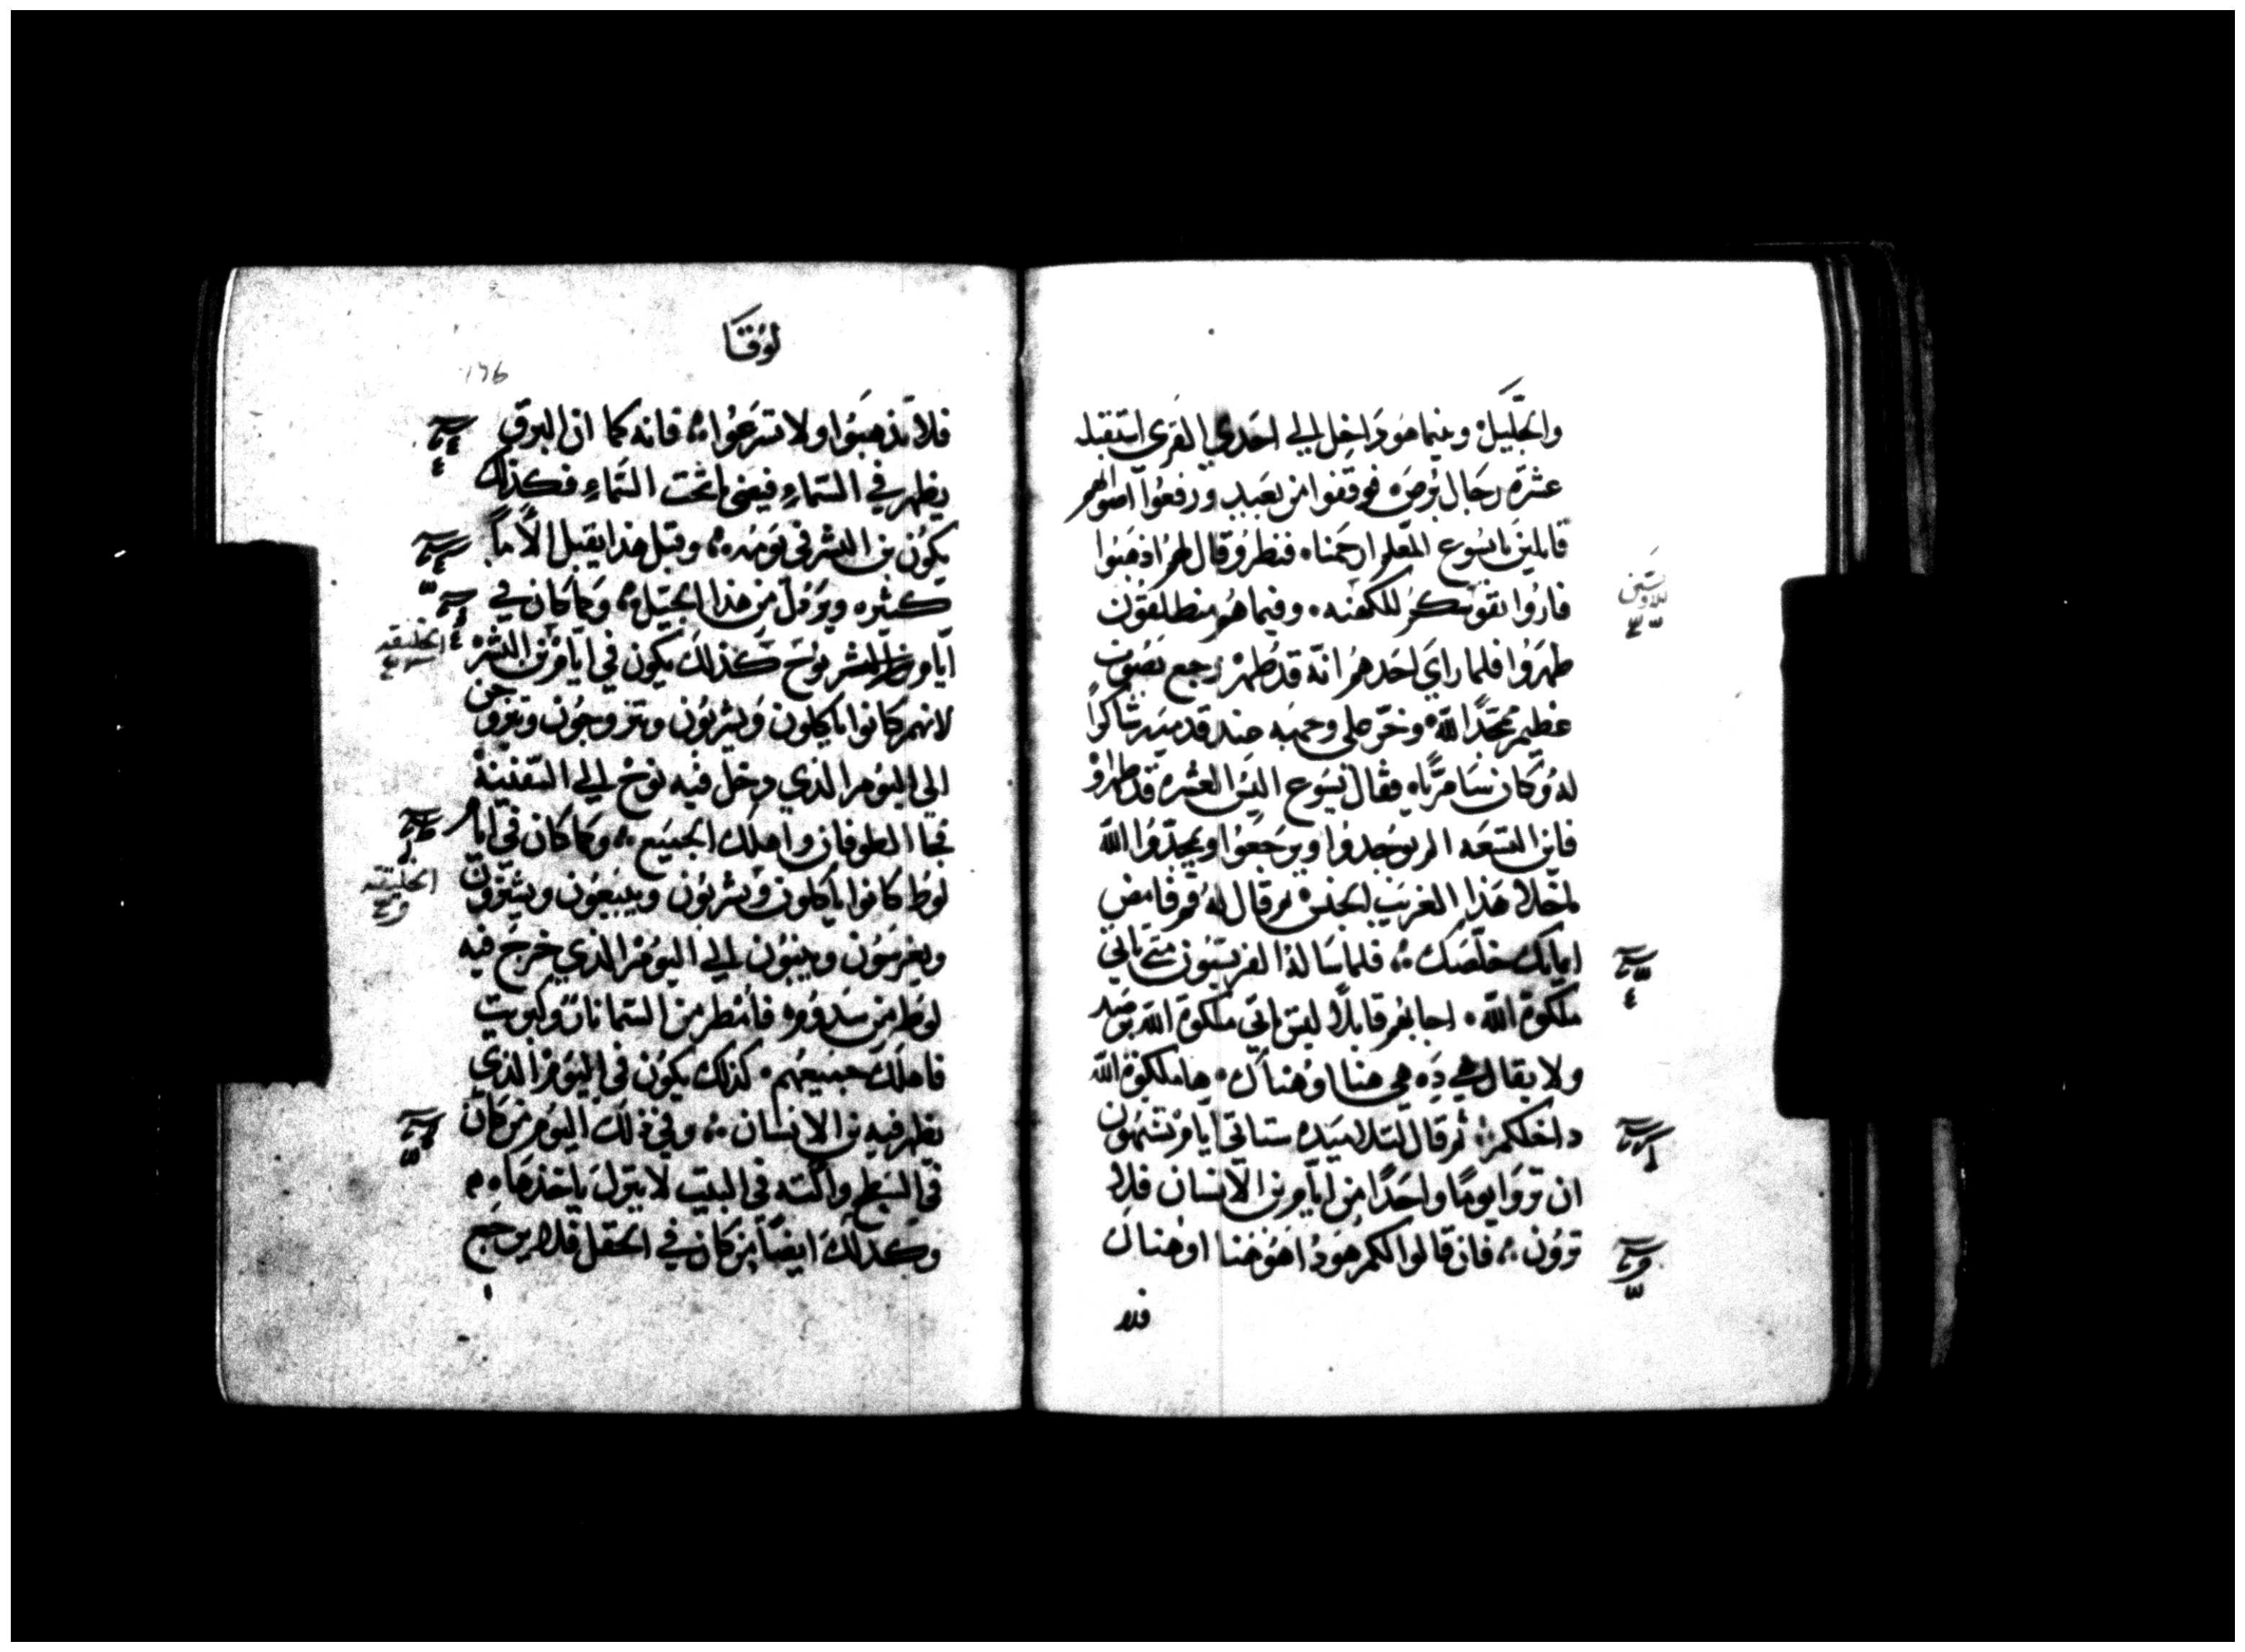 والجليل وبينما هو داخل الي احدي القري استقبله
عشرة رجال برص فوقفوا من بعيد ورفعوا اصواتهم
قايلين يا يسوع المعلم ارحمنا فنظر وقال لهم اذهبوا
فاروا نفوسكم للكهنه وفيما هم منطلقون
طهروا فلما راي احدهم انه قد طهر رجع بصوت
عظيم ممجدًا الله وخر علي وجهه عند قدميه شاكرًا
له وكان سامريًا فقال يسوع اليس العشره قد طهروا
فاين التسعه الم يوجدوا ويرجعوا ويمجدوا الله
ما خلا هذا الغريب الجنس ثم قال له قم فامض
ايمانك خلصك فلما ساله الفريسيون متي تاتي
ملكوة الله اجابهم قايلًا ليس تاتي ملكوة الله برصد
ولا يقال هي ذه هي هنا او هناك ها ملكوة الله
داخلكم ثم قال لتلاميذه ستاتي ايام تشتهون
ان تروا يومًا واحدًا من ايام بن الانسان فلا
ترون فان قالوا لكم هوذا هو هنا او هناك
فلا
للاويين
لوقا
196
فلا تذهبوا ولا تسرعوا فانه كما ان البرق
يظهر في السماء فيضي ما تحت السماء فكذلك
يكون بن البشر في يومه وقبل هذا يقبل الامًا
كثيره ويرذل من هذا الجيل وكما كان في
ايام نوح كذلك يكون في ايام بن البشر
لانهم كانوا ياكلون ويشربون ويتزوجون
الي اليوم الذي دخل فيه نوح الي السفينة
فجا الطوفان واهلك الجميع وكما كان في ايام
لوط كانوا ياكلون ويشربون ويبيعون ويشترون
ويغرسون ويبنون الي اليوم الذي خرج فيه
لوط من سدوم فامطر من السما نارًا وكبريت
فاهلك جميعهم كذلك يكون في اليوم الذي
يظهر فيه بن الانسان وفي ذلك اليوم من كان
في السطح والته في البيت لا ينزل ياخذها
وكذلك ايضًا من كان في الحقل فلا يرجع
الخليقه
الخليقه